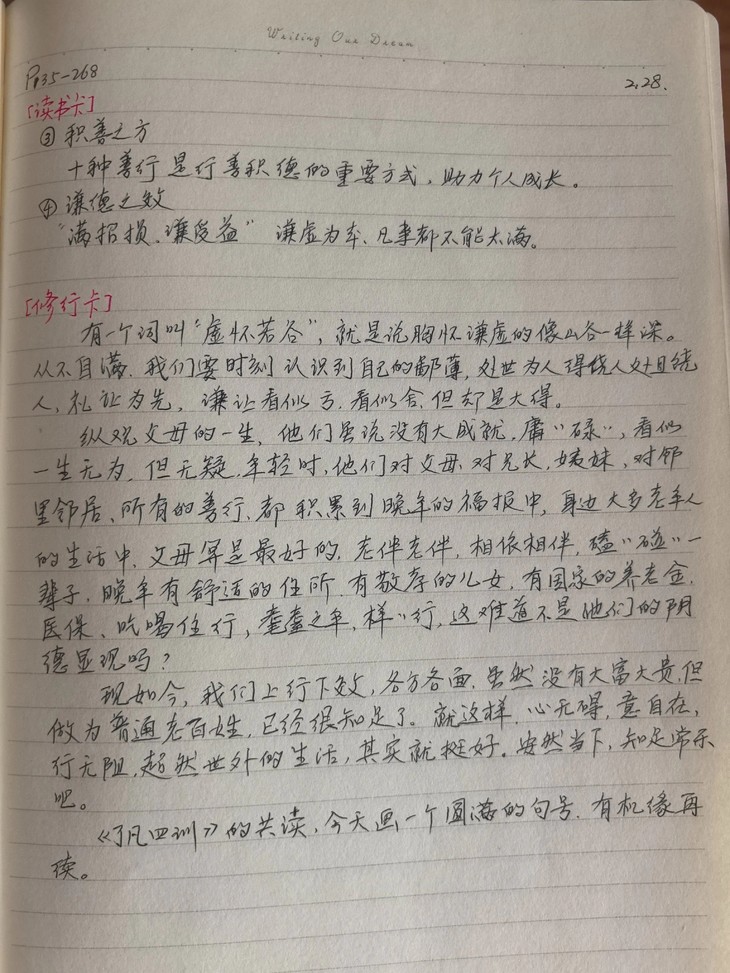 Writing Our Dream
P135-268 2.28.
[读书卡]
③ 积善之方
十种善行是行善积德的重要方式，助力个人成长。
④ 谦德之效
“满招损、谦受益” 谦虚为本、凡事都不能太满。
[修行卡]
有一个词叫“虚怀若谷”，就是说胸怀谦虚的像山谷一样深。
从不自满．我们要时刻认识到自己的鄙薄，处世为人得饶人处且饶
人，礼让为先，谦让看似亏．看似舍．但却是大得。
纵观父母的一生，他们虽说没有大成就，庸〃碌〃，看似
一生无为．但无疑，年轻时，他们对父母、对兄长，姨妹，对邻
里邻居、所有的善行、都积累到晚年的福报中，身边大多老年人
的生活中．父母算是最好的．老伴老伴，相依相伴，磕〃碰〃一
辈子．晚年有舒适的住所．有敬孝的儿女，有国家的养老金，
医保、吃喝住行，耄耋之年，样〃行，这难道不是他们的阴
德显现吗？
现如今，我们上行下效，各方各面．虽然没有大富大贵，但
做为普通老百姓，已经很知足了。就这样，心无碍，意自在，
行无阻，超然世外的生活，其实就挺好。安然当下，知足常乐
吧。
《了凡四训》的共读，今天画一个圆满的句号．有机缘再
续。